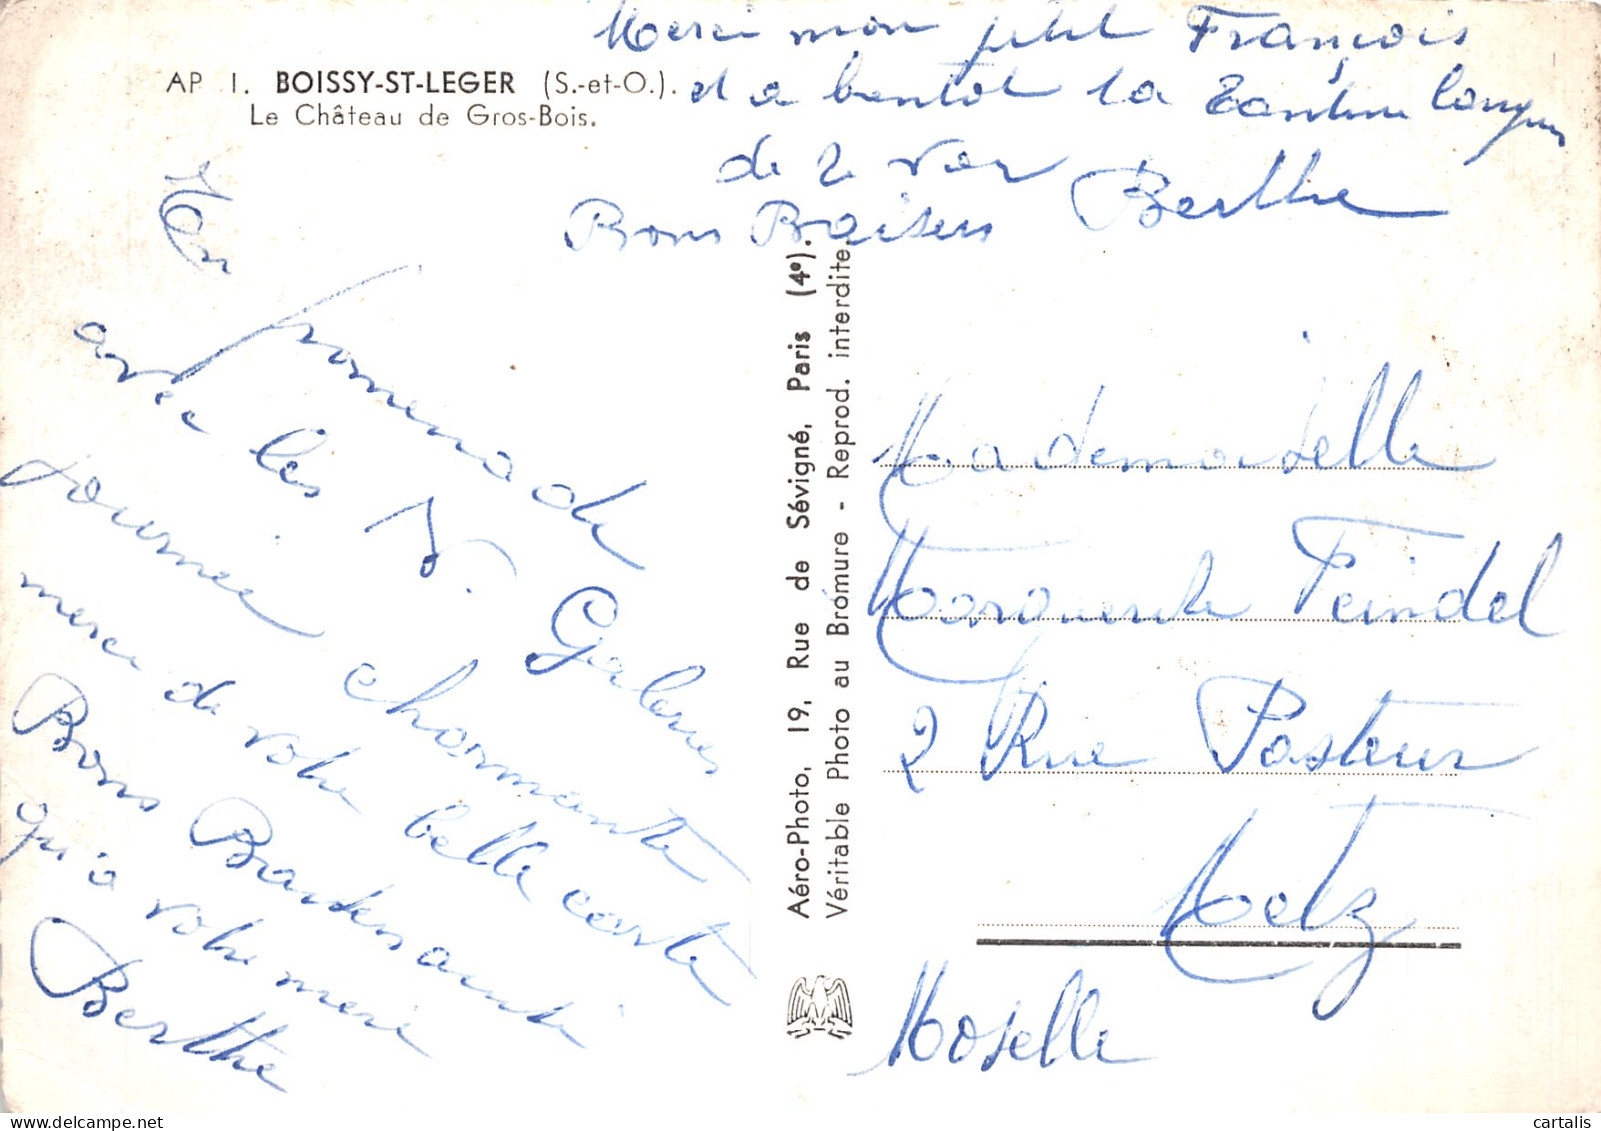 AP 1. BOISSY-ST-LEGER (S.-et-O.).
Le Château de Gros-Bois.
Merci mon petit François
et a bientot la
de te voir
Bons Baisers Berthe
En promenade
avec les
journée charmante
merci de votre belle carte
Bons Baisers aussi
qu'a votre mère
Berthe
Aéro-Photo, 19, Rue de Sévigné, Paris (4e).
Véritable Photo au Bromure - Reprod. interdite.
Mademoiselle
Marguerite Feindel
2 Rue Pasteur
Metz
Moselle
cartalis
www.delcampe.net